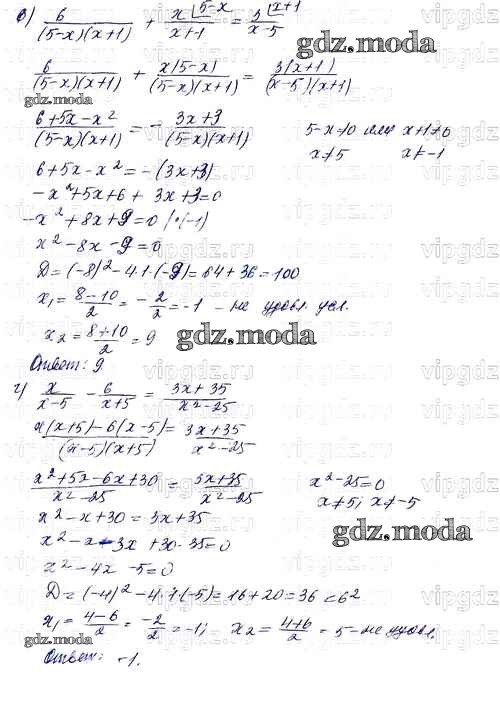 в) 6/((5-x)(x+1)) + x⌊5-x/(x+1) = 3⌊x+1/(x-5)
gdz.moda
6/((5-x)(x+1)) + x(5-x)/((5-x)(x+1)) = 3(x+1)/((x-5)(x+1))
(6+5x-x²)/((5-x)(x+1)) = - (3x+3)/((5-x)(x+1)) 5-x≠0 или x+1≠0
x≠5 x≠-1
6+5x-x² = -(3x+3)
-x²+5x+6+3x+3=0
-x²+8x+9=0 |·(-1)
x²-8x-9=0
D=(-8)²-4·1·(-9)=64+36=100
x₁=(8-10)/2=-2/2=-1 - не удовл. усл.
x₂=(8+10)/2=9
gdz.moda
Ответ: 9
г) x/(x-5) - 6/(x+5) = (3x+35)/(x²-25)
gdz.moda
(x(x+5)-6(x-5))/((x-5)(x+5)) = (3x+35)/(x²-25)
(x²+5x-6x+30)/(x²-25) = (3x+35)/(x²-25) x²-25=0
x≠5; x≠-5
x²-x+30=3x+35
gdz.moda
x²-x-3x+30-35=0
x²-4x-5=0
D=(-4)²-4·1·(-5)=16+20=36=6²
x₁=(4-6)/2=-2/2=-1; x₂=(4+6)/2=5-не удовл.
gdz.moda
Ответ: -1.
vipgdz.ru